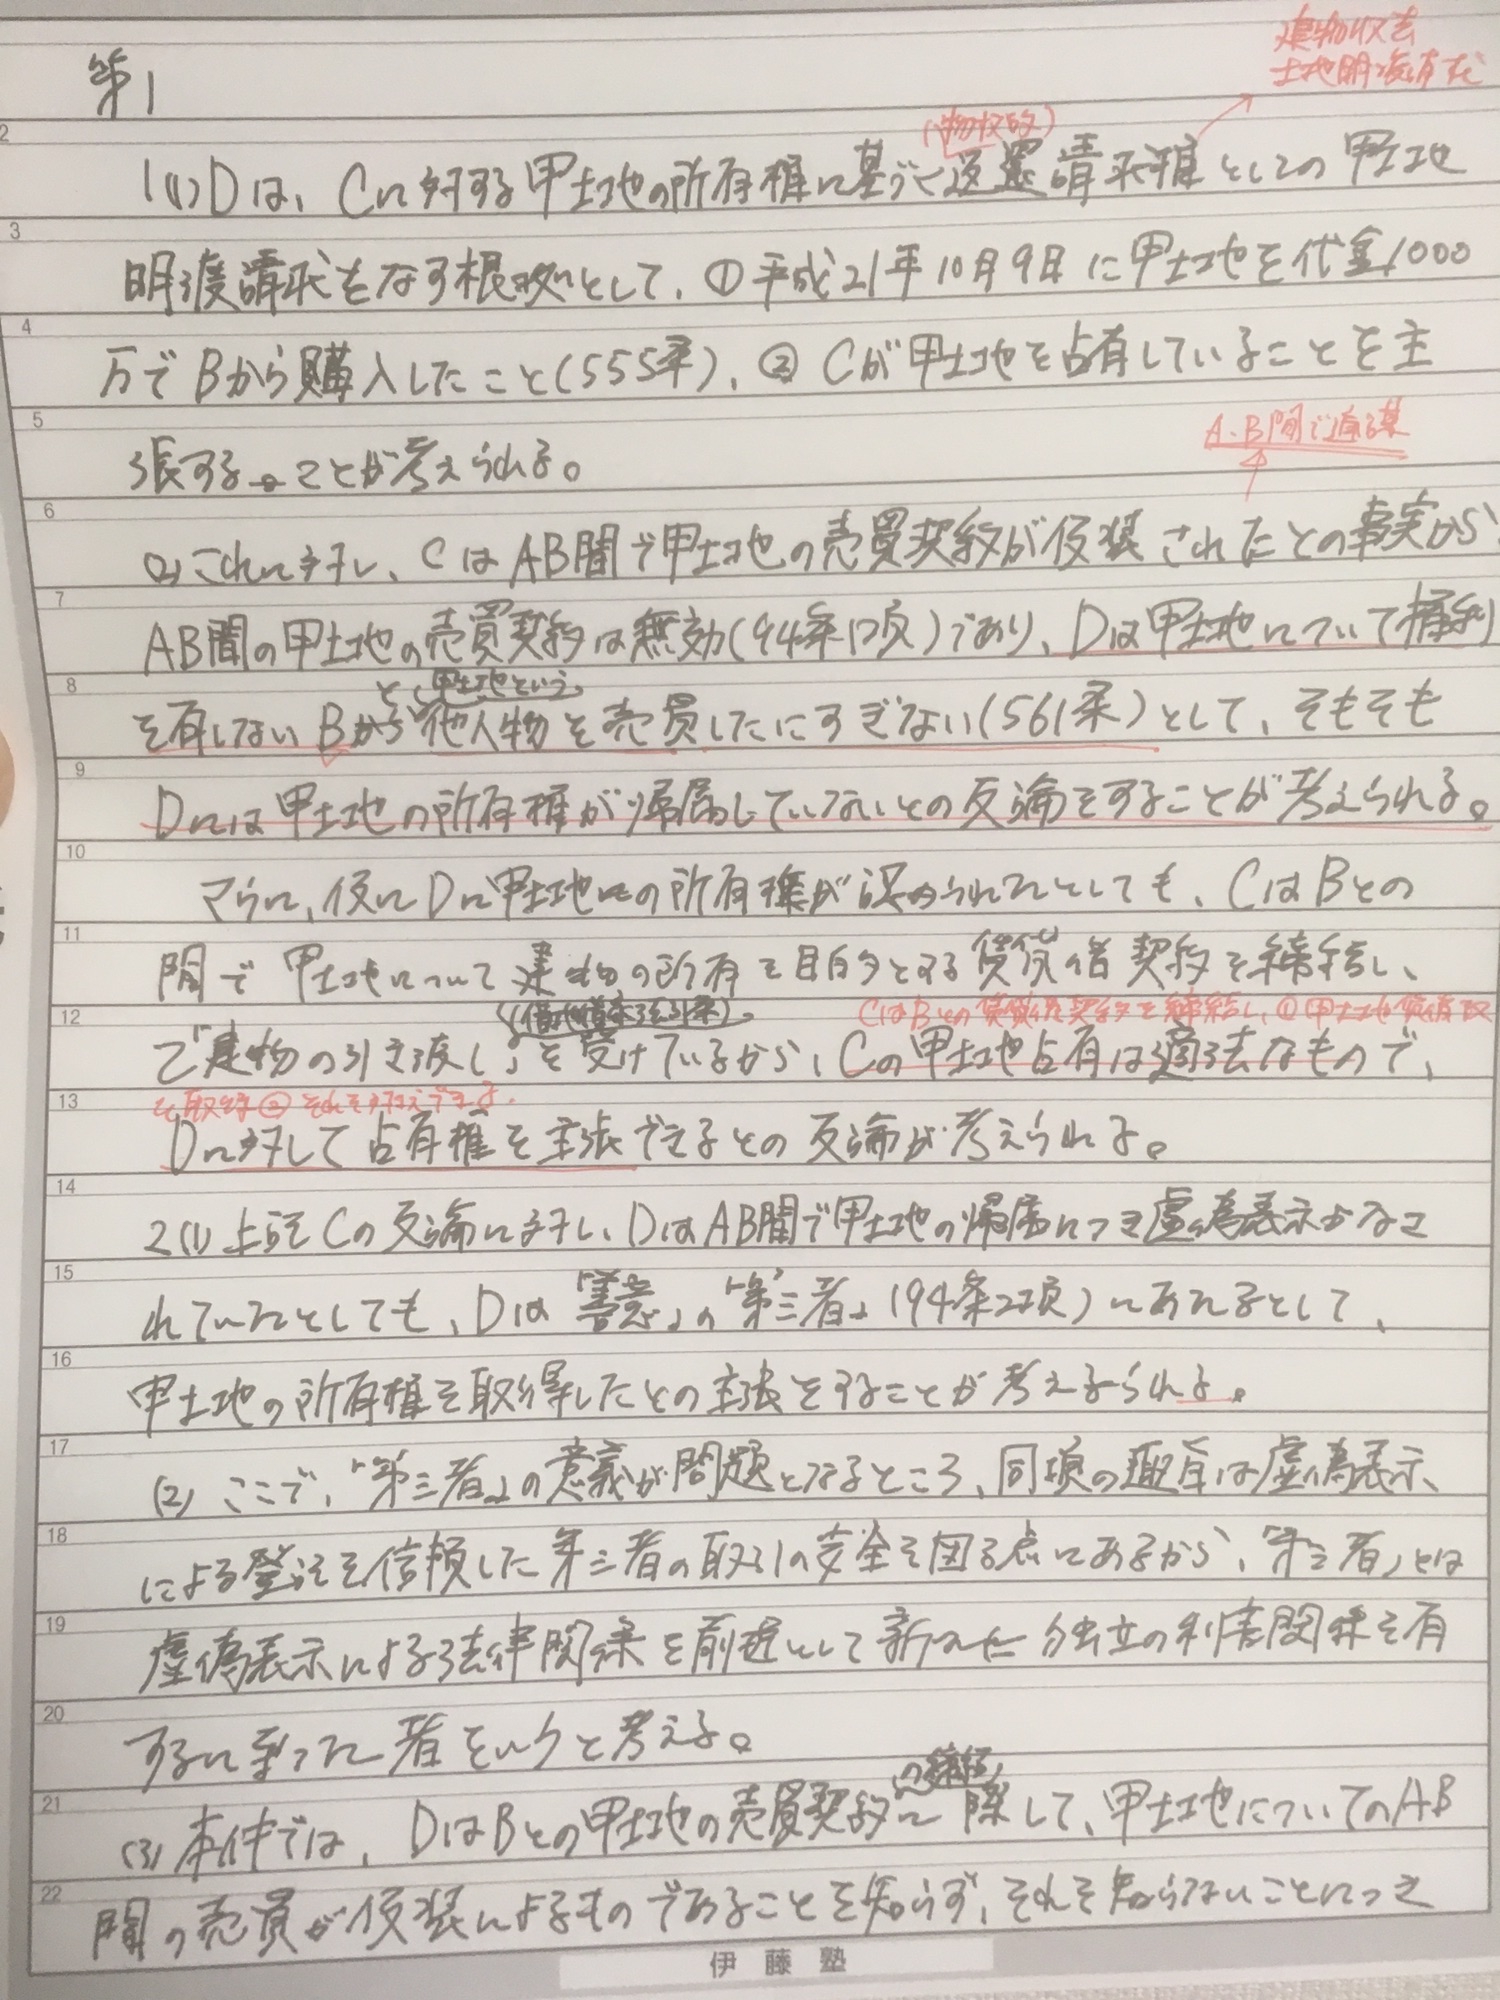 建物収去
土地明渡請求
第1
(物権的)
1(1)Dは、Cに対する甲土地の所有権に基づく返還請求権としての甲土地
明渡請求をなす根拠として、①平成21年10月9日に甲土地を代金1000
万でBから購入したこと(555条)、②Cが甲土地を占有していることを主
張する。ことが考えられる。
A・B間で通謀
(2)これに対し、CはAB間で甲土地の売買契約が仮装されたとの事実から
AB間の甲土地の売買契約は無効(94条1項)であり、Dは甲土地について権利
と 甲土地という
を有しないBから他人物を売買したにすぎない(561条)として、そもそも
Dには甲土地の所有権が帰属していないとの反論をすることが考えられる。
さらに、仮にDに甲土地の所有権が認められたとしても、CはBとの
間で甲土地について建物の所有を目的とする賃貸借契約を締結し、
(借地借家法31条) CはBとの賃貸借契約を締結し、①甲土地賃借権
で建物の引き渡し」を受けているから、Cの甲土地占有は適法なもので、
を取得②それを対抗できる。
Dに対して占有権を主張できるとの反論が考えられる。
2(1)上記Cの反論に対し、DはAB間で甲土地の帰属につき虚偽表示がなさ
れていたとしても、Dは「善意」の「第三者」(94条2項)にあたるとして、
甲土地の所有権を取得したとの主張をすることが考えられる。
(2)ここで、「第三者」の意義が問題となるところ、同項の趣旨は虚偽表示
による登記を信頼した第三者の取引の安全を図る点にあるから、「第三者」とは
虚偽表示による法律関係を前提として新たに独立の利害関係を有
するに至った者をいうと考える。
の締結
(3)本件では、DはBとの甲土地の売買契約に際して、甲土地についてのAB
間の売買が仮装によるものであることを知らず、それを知らないことにつき
伊藤塾
2
3
4
5
6
7
8
9
10
11
12
13
14
15
16
17
18
19
20
21
22